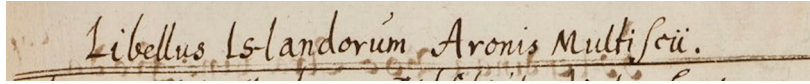 Libellus Islandorum Aronis Multiscii.